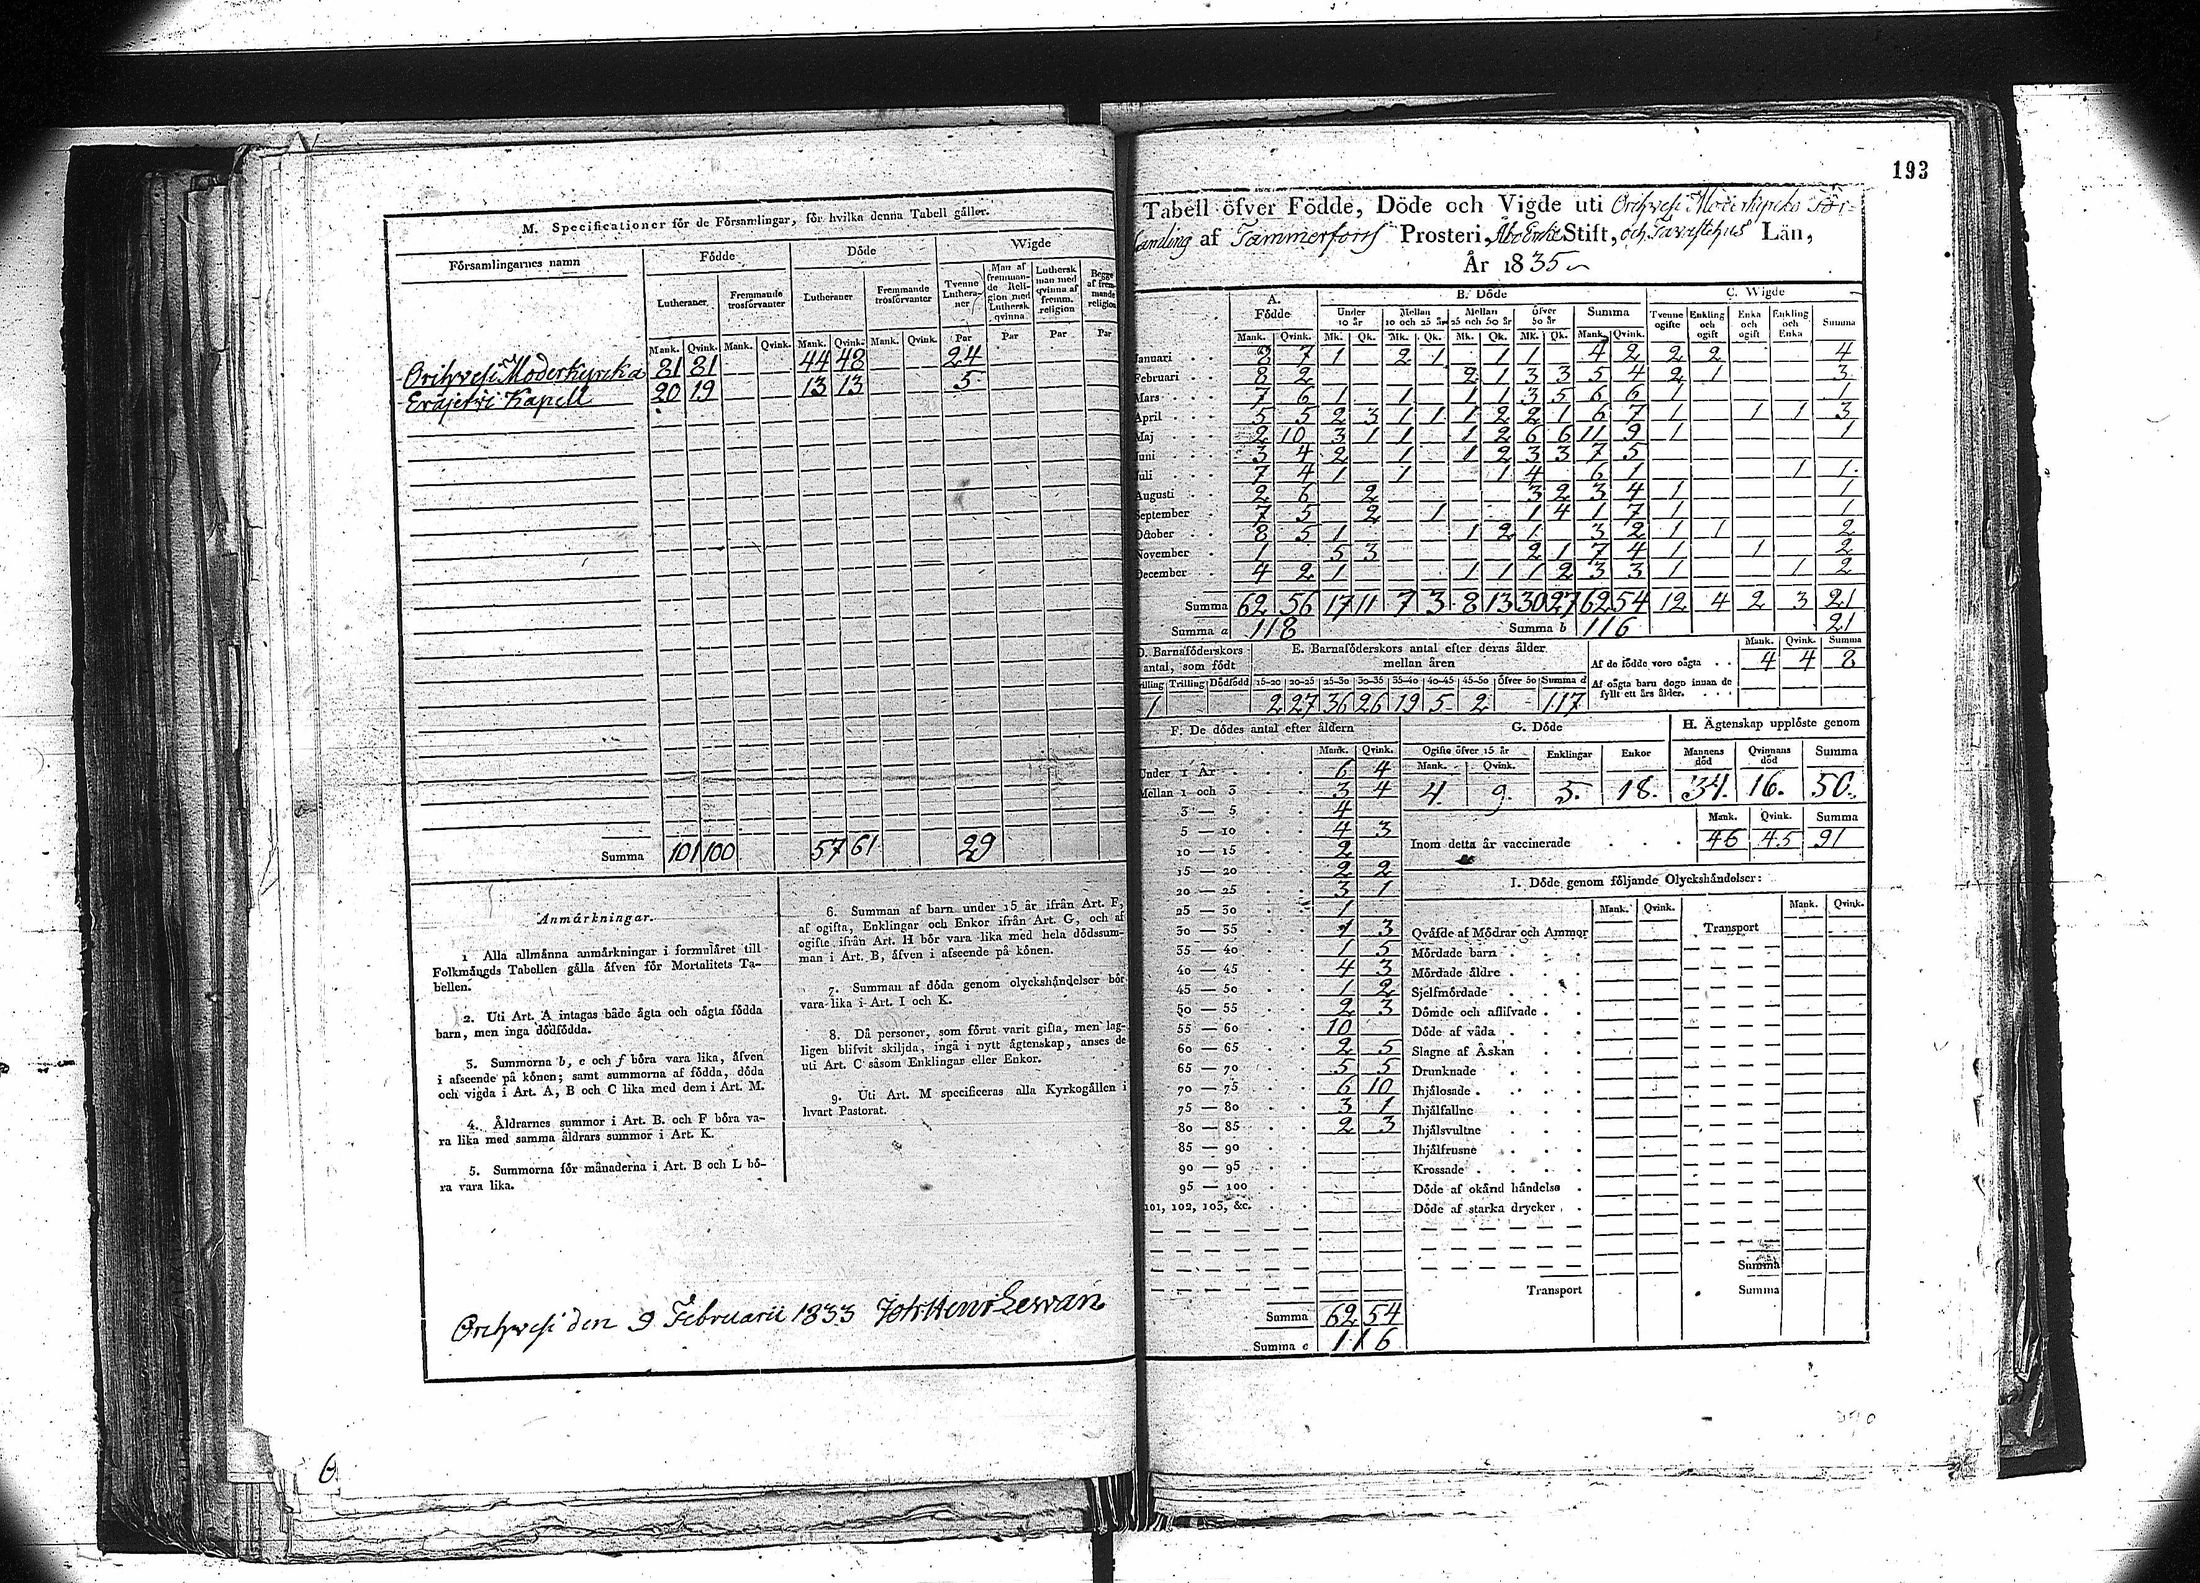 M. Specificationer för de Församlingar, för hvilka denna Tabell gäller.
Församlingarnes namn | Födde | Döde | Wigde
Lutheraner. | Fremmande trosförvanter | Lutheraner | Fremmande trosförvanter | Tvenne Lutheraner | Man af fremmande Religion med Luthersk qvinna | Luthersk man med qvinna af fremm. religion | Begge af fremmande religion
Mank. | Qvink. | Mank. | Qvink. | Mank. | Qvink. | Mank. | Qvink. | Par | Par | Par | Par
Orihvesi Moderkyrcka 81 81 44 48 24
Eräjervi Kapell 20 19 13 13 5
Summa 101 100 57 61 29
Anmärkningar.
1 Alla allmänna anmärkningar i formuläret till
Folkmängds Tabellen gälla äfven för Mortalitets Ta-
bellen.
2. Uti Art. A intagas både ägta och oägta födda
barn, men inga dödfödda.
3. Summorna b, c och f böra vara lika, äfven
i afseende på könen; samt summorna af födda, döda
och vigda i Art. A, B och C lika med dem i Art. M.
4. Åldrarnes summor i Art. B. och F böra va-
ra lika med samma åldrars summor i Art. K.
5. Summorna för månaderna i Art. B och L bö-
ra vara lika.
6. Summan af barn under 15 år ifrån Art. F,
af ogifta, Enklingar och Enkor ifrån Art. G, och af
ogifte ifrån Art. H bör vara lika med hela dödssum-
man i Art. B, äfven i afseende på könen.
7. Summan af döda genom olyckshändelser bör
vara lika i Art. I och K.
8. Då personer, som förut varit gifta, men lag-
ligen blifvit skiljda, ingå i nytt ägtenskap, anses de
uti Art. C såsom Enklingar eller Enkor.
9. Uti Art. M specificeras alla Kyrkogällen i
hvart Pastorat.
Orihvesi den 9 Februarii 1833
6
193
Tabell öfver Födde, Döde och Vigde uti Orihvesi Moderkyrcko För-
samling af Tammerfors Prosteri, Åbo Erke Stift, och Tavastehus Län,
År 1835
A. Födde | B. Döde | C. Wigde
Under 10 år | Mellan 10 och 25 år | Mellan 25 och 50 år | öfver 50 år | Summa | Tvenne ogifte | Enkling och ogift | Enka och ogift | Enkling och Enka | Summa
Mank. | Qvink. | Mk. | Qk. | Mk. | Qk. | Mk. | Qk. | Mk. | Qk. | Mank. | Qvink.
Januari 8 7 1 2 1 1 1 4 2 2 2 4
Februari 8 2 2 1 3 3 5 4 2 1 3
Mars 7 6 1 1 1 1 3 5 6 6 1 1
April 5 5 2 3 1 1 1 2 2 1 6 7 1 1 1 3
Maj 2 10 3 1 1 1 2 6 6 11 9 1 1
Juni 3 4 2 1 1 2 3 3 7 5
Juli 7 4 1 1 1 4 6 1 1 1
Augusti 2 6 2 3 2 3 4 1 1
September 7 5 2 1 1 4 1 7 1 1
October 8 5 1 1 2 1 3 2 1 1 2
November 1 5 3 2 1 7 4 1 1 2
December 4 2 1 1 1 1 2 3 3 1 1 2
Summa 62 56 17 11 7 3 8 13 30 27 62 54 12 4 2 3 21
Summa a 118 Summa b 116 21
D. Barnaföderskors antal, som födt
Tvilling | Trilling | Dödfödd
1
E. Barnaföderskors antal efter deras ålder mellan åren
15-20 | 20-25 | 25-30 | 30-35 | 35-40 | 40-45 | 45-50 | öfver 50 | Summa d
2 27 36 26 19 5 2 - 117
Mank. | Qvink. | Summa
Af de födde voro oägta . . 4 4 8
Af oägta barn dogo innan de
fyllt ett års ålder. . . .
F. De dödes antal efter åldern
Mank. | Qvink.
Under 1 År 6 4
Mellan 1 och 3 3 4
3 — 5 4
5 — 10 4 3
10 — 15 2
15 — 20 2 2
20 — 25 3 1
25 — 30 1
30 — 35 1 3
35 — 40 1 5
40 — 45 4 3
45 — 50 1 2
50 — 55 2 3
55 — 60 10
60 — 65 2 5
65 — 70 5 5
70 — 75 6 10
75 — 80 3 1
80 — 85 2 3
85 — 90
90 — 95
95 — 100
101, 102, 103, &c.
Summa 62 54
Summa c 116
G. Döde
Ogifte öfver 15 år | Enklingar | Enkor
Mank. | Qvink.
4. 9. 5. 18.
H. Ägtenskap upplöste genom
Mannens död | Qvinnans död | Summa
34. 16. 50.
Mank. | Qvink. | Summa
Inom detta år vaccinerade . . . 46 45 91
I. Döde genom följande Olyckshändelser:
Mank. | Qvink. | Mank. | Qvink.
Qväfde af Mödrar och Ammor Transport
Mördade barn
Mördade äldre
Sjelfmördade
Dömde och aflifvade
Döde af våda
Slagne af Åskan
Drunknade
Ihjälosade
Ihjälfallne
Ihjälsvultne
Ihjälfrusne
Krossade
Döde af okänd händelse
Döde af starka drycker
Summa
Transport Summa